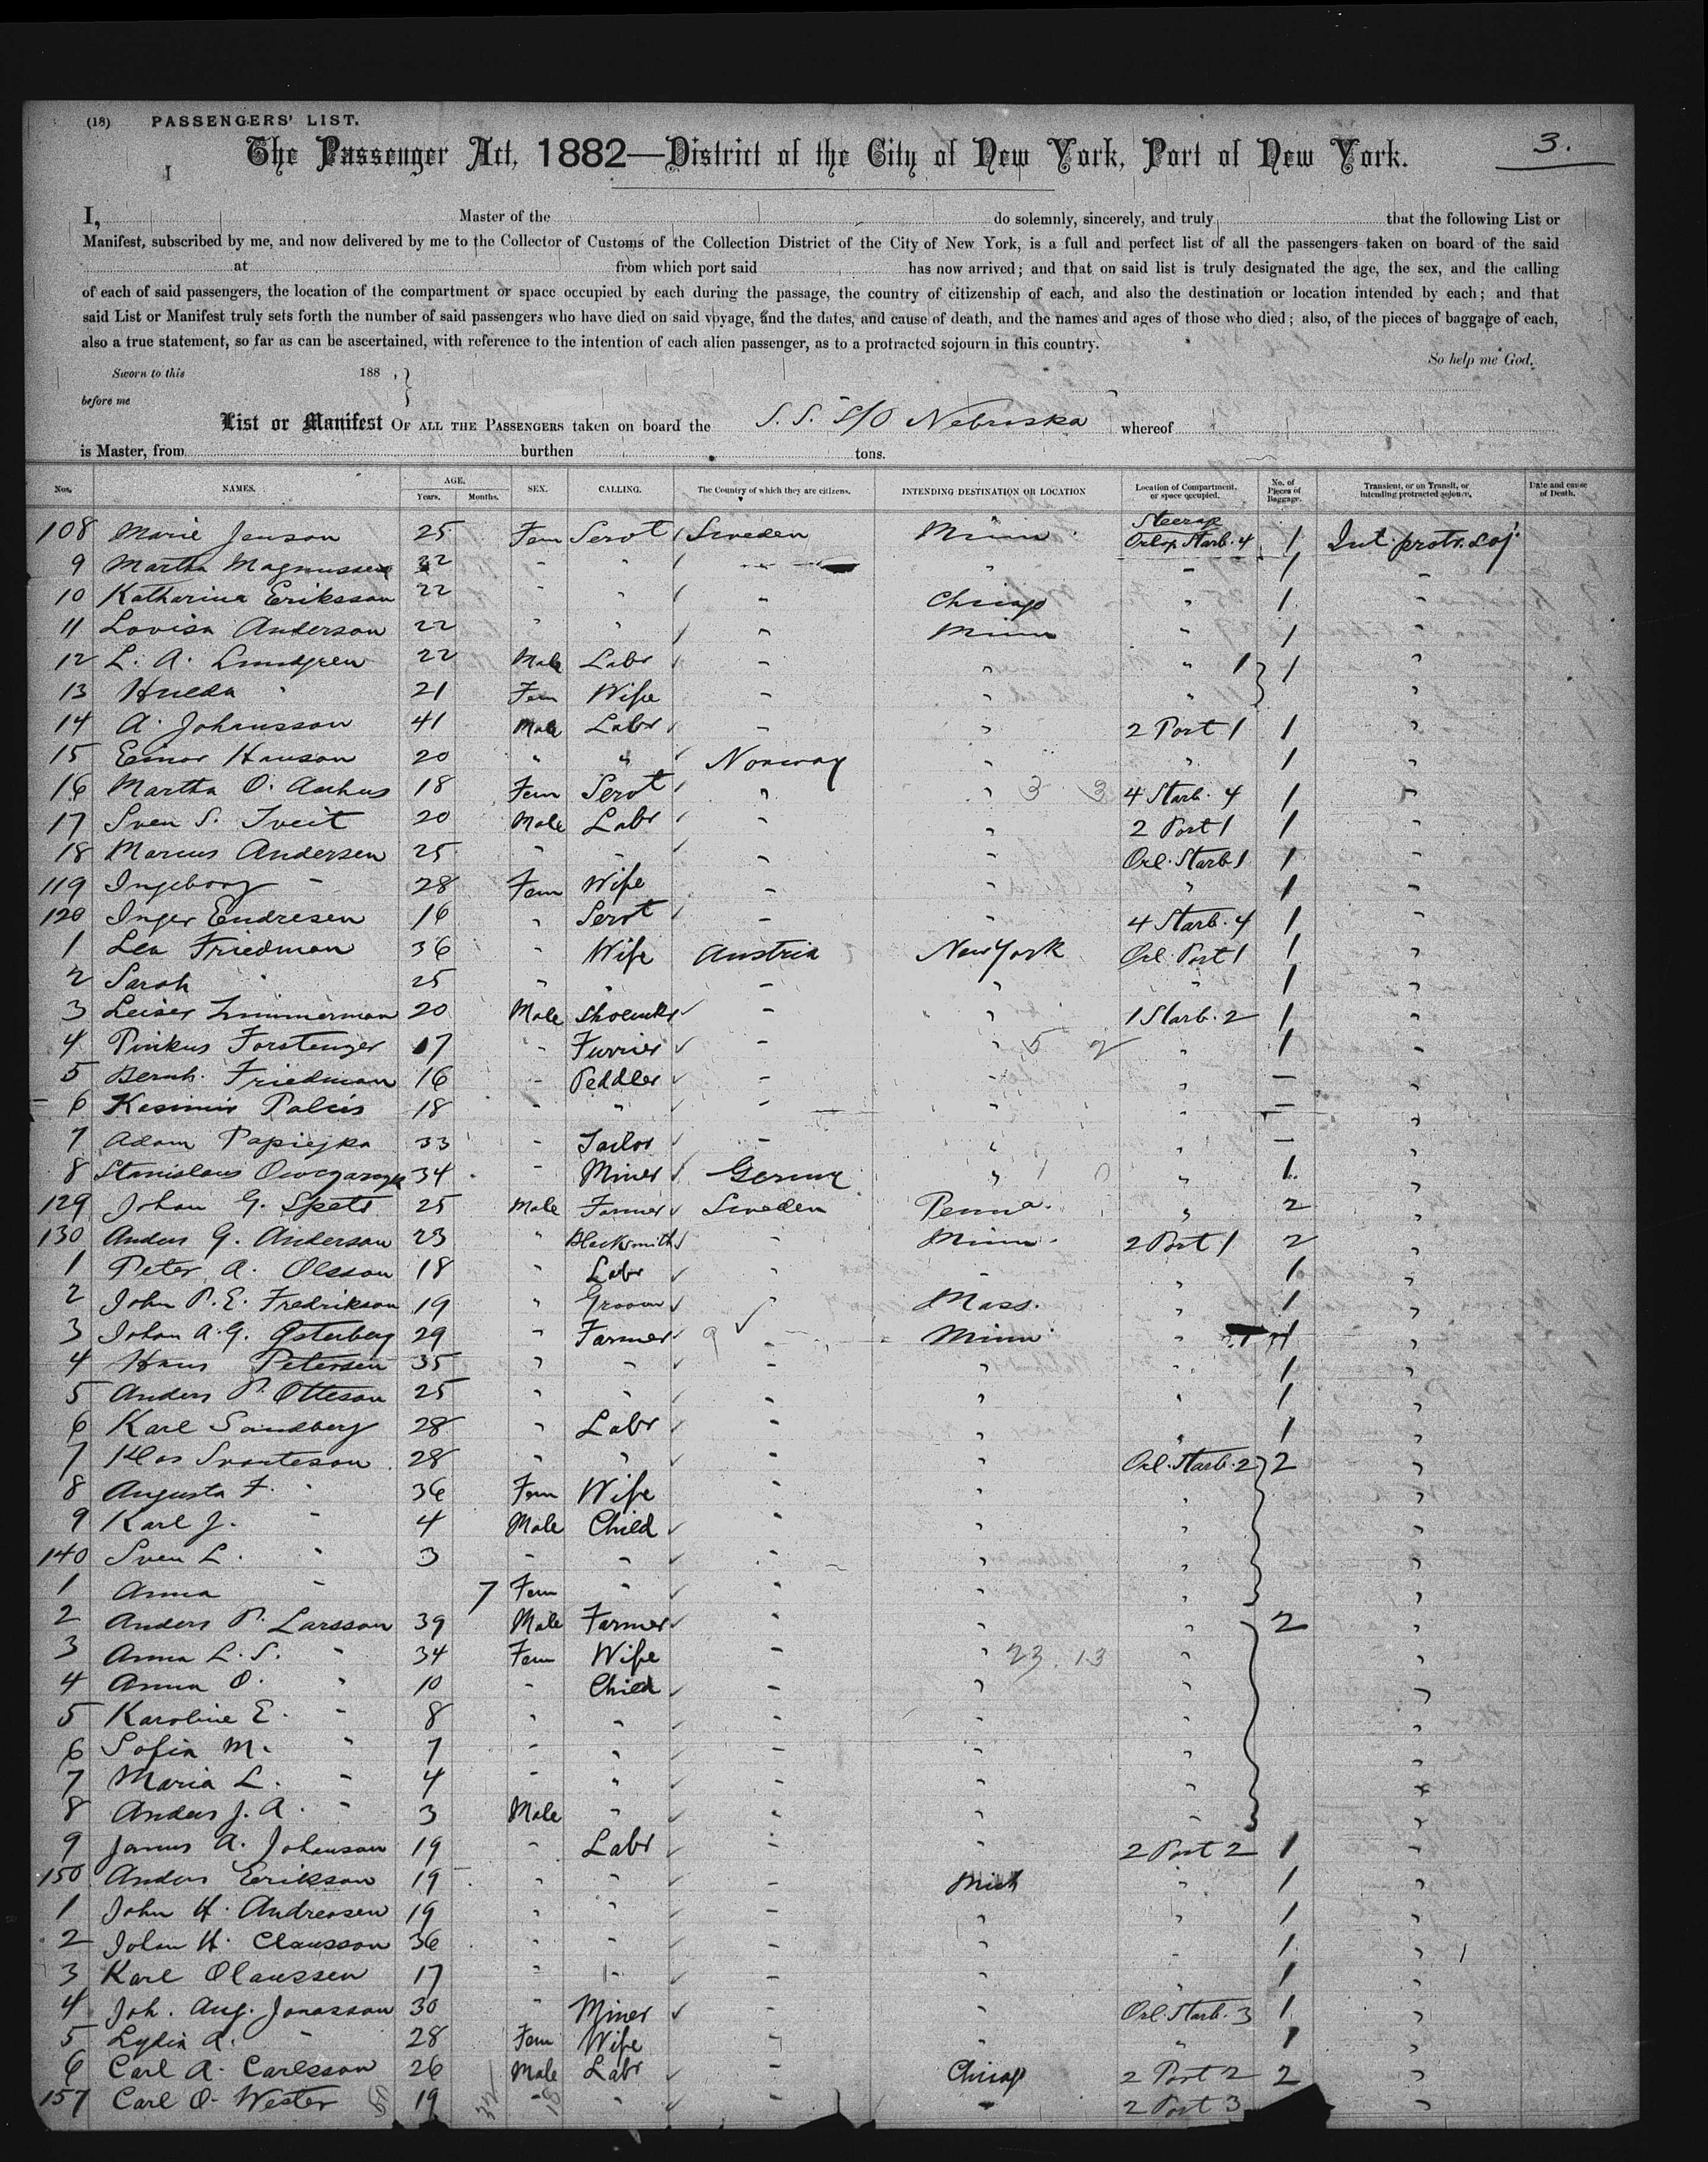 (18) PASSENGERS' LIST.
The Passenger Act, 1882—District of the City of New York, Port of New York.
3.
I
I, Master of the do solemnly, sincerely, and truly that the following List or
Manifest, subscribed by me, and now delivered by me to the Collector of Customs of the Collection District of the City of New York, is a full and perfect list of all the passengers taken on board of the said
at from which port said has now arrived; and that on said list is truly designated the age, the sex, and the calling
of each of said passengers, the location of the compartment or space occupied by each during the passage, the country of citizenship of each, and also the destination or location intended by each; and that
said List or Manifest truly sets forth the number of said passengers who have died on said voyage, and the dates, and cause of death, and the names and ages of those who died; also, of the pieces of baggage of each,
also a true statement, so far as can be ascertained, with reference to the intention of each alien passenger, as to a protracted sojourn in this country.
So help me God.
Sworn to this 188 , }
before me
List or Manifest OF ALL THE PASSENGERS taken on board the S.S. S/O Nebraska whereof
is Master, from burthen tons.
Nos. NAMES. AGE. Years. Months. SEX. CALLING. The Country of which they are citizens. INTENDING DESTINATION OR LOCATION Location of Compartment, or space occupied. No. of Pieces of Baggage. Transient, or on Transit, or intending protracted sojourn. Date and cause of Death.
108 Marie Jenson 25 Fem Servt Sweden Minn Steerage Orlop Starb. 4 1 Int. protr. soj.
9 Martha Magnussen 32 " " " " " 1 "
10 Katharina Eriksson 22 " " " Chicago " 1 "
11 Lovisa Anderson 22 " " " Minn " 1 "
12 L. A. Lundgren 22 Male Labr " " " 1 } 1 "
13 Hulda " 21 Fem Wife " " " "
14 A. Johansson 41 Male Labr " " 2 Port 1 1 "
15 Einar Hanson 20 " " Norway " " 1 "
16 Martha O. Aarhus 18 Fem Servt " " 3 3 4 Starb. 4 1 "
17 Sven S. Tveit 20 Male Labr " " 2 Port 1 1 "
18 Marcus Andersen 25 " " " " Orl. Starb 1 1 "
119 Ingeborg " 28 Fem Wife " " " 1 "
120 Inger Endresen 16 " Servt " " 4 Starb. 4 1 "
1 Lea Friedman 36 " Wife Austria New York Orl. Port 1 1 "
2 Sarah " 25 " " " " " 1 "
3 Leiser Zimmerman 20 Male Shoemkr " " 1 Starb. 2 1 "
4 Pinkus Forstenzer 17 " Furrier " " 5 2 " 1 "
5 Bernh. Friedman 16 " Peddler " " " — "
6 Kasimir Palcis 18 " " " " " — "
7 Adam Papiejka 33 " Tailor " " " — "
8 Stanislaus Owczarzyk 34 " Miner Germy " 1 0 " 1 "
129 Johan G. Spets 25 Male Farmer Sweden Penna. " 2 "
130 Anders G. Anderson 23 " Blacksmith " Minn. 2 Port 1 2 "
1 Peter A. Olsson 18 " Labr " " " 1 "
2 John P. E. Fredrikson 19 " Groom " Mass. " 1 "
3 Johan A. G. Osterberg 29 " Farmer " Minn " 1 "
4 Hans Petersen 35 " " " " " 1 "
5 Anders P. Otteson 25 " " " " " 1 "
6 Karl Sandberg 28 " Labr " " " 1 "
7 Klas Svanteson 28 " " " " Orl. Starb. 2 } 2 "
8 Augusta F. " 36 Fem Wife " " " "
9 Karl J. " 4 Male Child " " " "
140 Sven L. " 3 " " " " " "
1 Anna " 7 Fem " " " " "
2 Anders P. Larsson 39 Male Farmer " " " } 2 "
3 Anna L. S. " 34 Fem Wife " " 23. 13 " "
4 Anna O. " 10 " Child " " " "
5 Karoline E. " 8 " " " " " "
6 Sofia M. " 7 " " " " " "
7 Maria L. " 4 " " " " " "
8 Anders J. A. " 3 Male " " " " "
9 James A. Johanson 19 " Labr " " 2 Port 2 1 "
150 Anders Erikson 19 " " " Mich " 1 "
1 John H. Andreasen 19 " " " " " 1 "
2 Johan H. Clausson 36 " " " " " 1 "
3 Karl Olaussen 17 " " " " " 1 "
4 Joh. Aug. Jonasson 30 " Miner " " Orl. Starb. 3 1 "
5 Lydia A. " 28 Fem Wife " " " 1 "
6 Carl A. Carlsson 26 Male Labr " Chicago 2 Port 2 2 "
157 Carl O. Wester 19 " " " " 2 Port 3 "